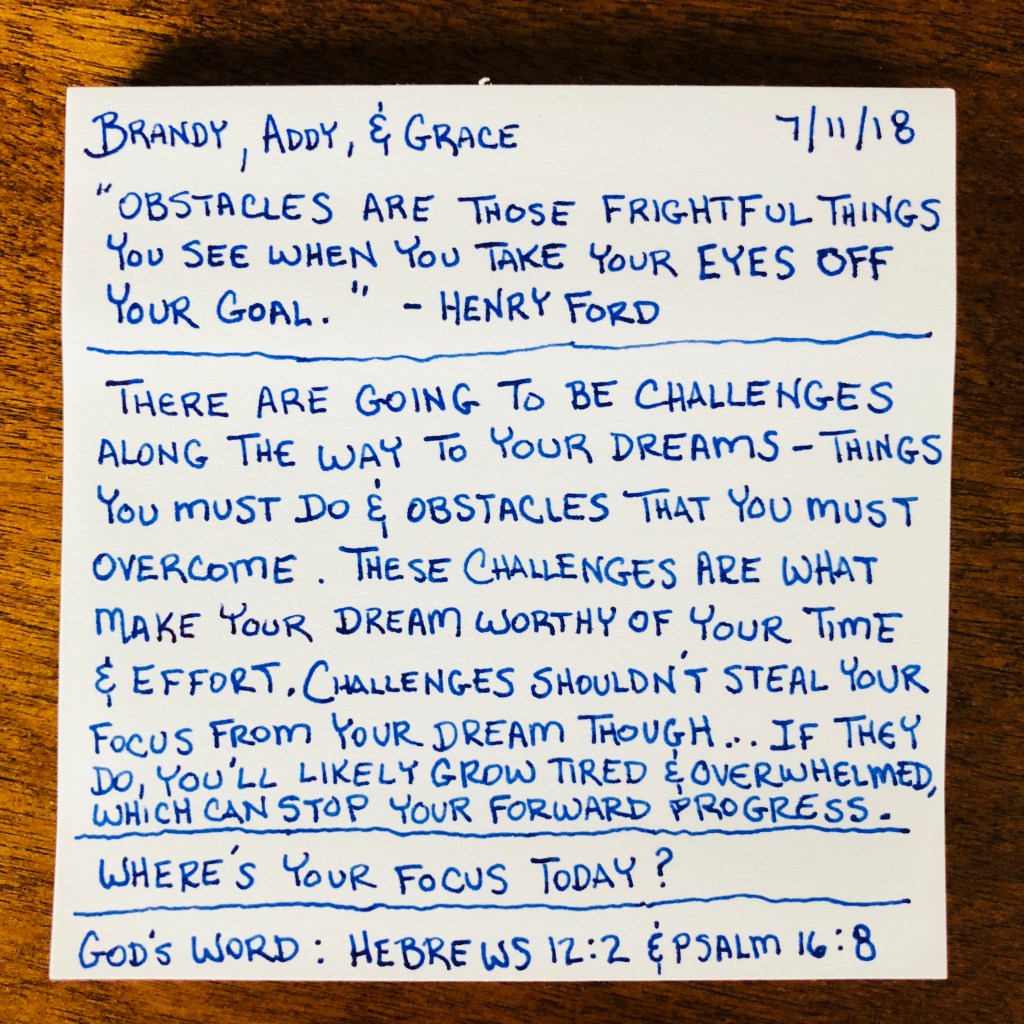 BRANDY, ADDY, & GRACE 7/11/18
"OBSTACLES ARE THOSE FRIGHTFUL THINGS
YOU SEE WHEN YOU TAKE YOUR EYES OFF
YOUR GOAL." - HENRY FORD
THERE ARE GOING TO BE CHALLENGES
ALONG THE WAY TO YOUR DREAMS - THINGS
YOU MUST DO & OBSTACLES THAT YOU MUST
OVERCOME. THESE CHALLENGES ARE WHAT
MAKE YOUR DREAM WORTHY OF YOUR TIME
& EFFORT. CHALLENGES SHOULDN'T STEAL YOUR
FOCUS FROM YOUR DREAM THOUGH... IF THEY
DO, YOU'LL LIKELY GROW TIRED & OVERWHELMED,
WHICH CAN STOP YOUR FORWARD PROGRESS.
WHERE'S YOUR FOCUS TODAY?
GOD'S WORD: HEBREWS 12:2 & PSALM 16:8